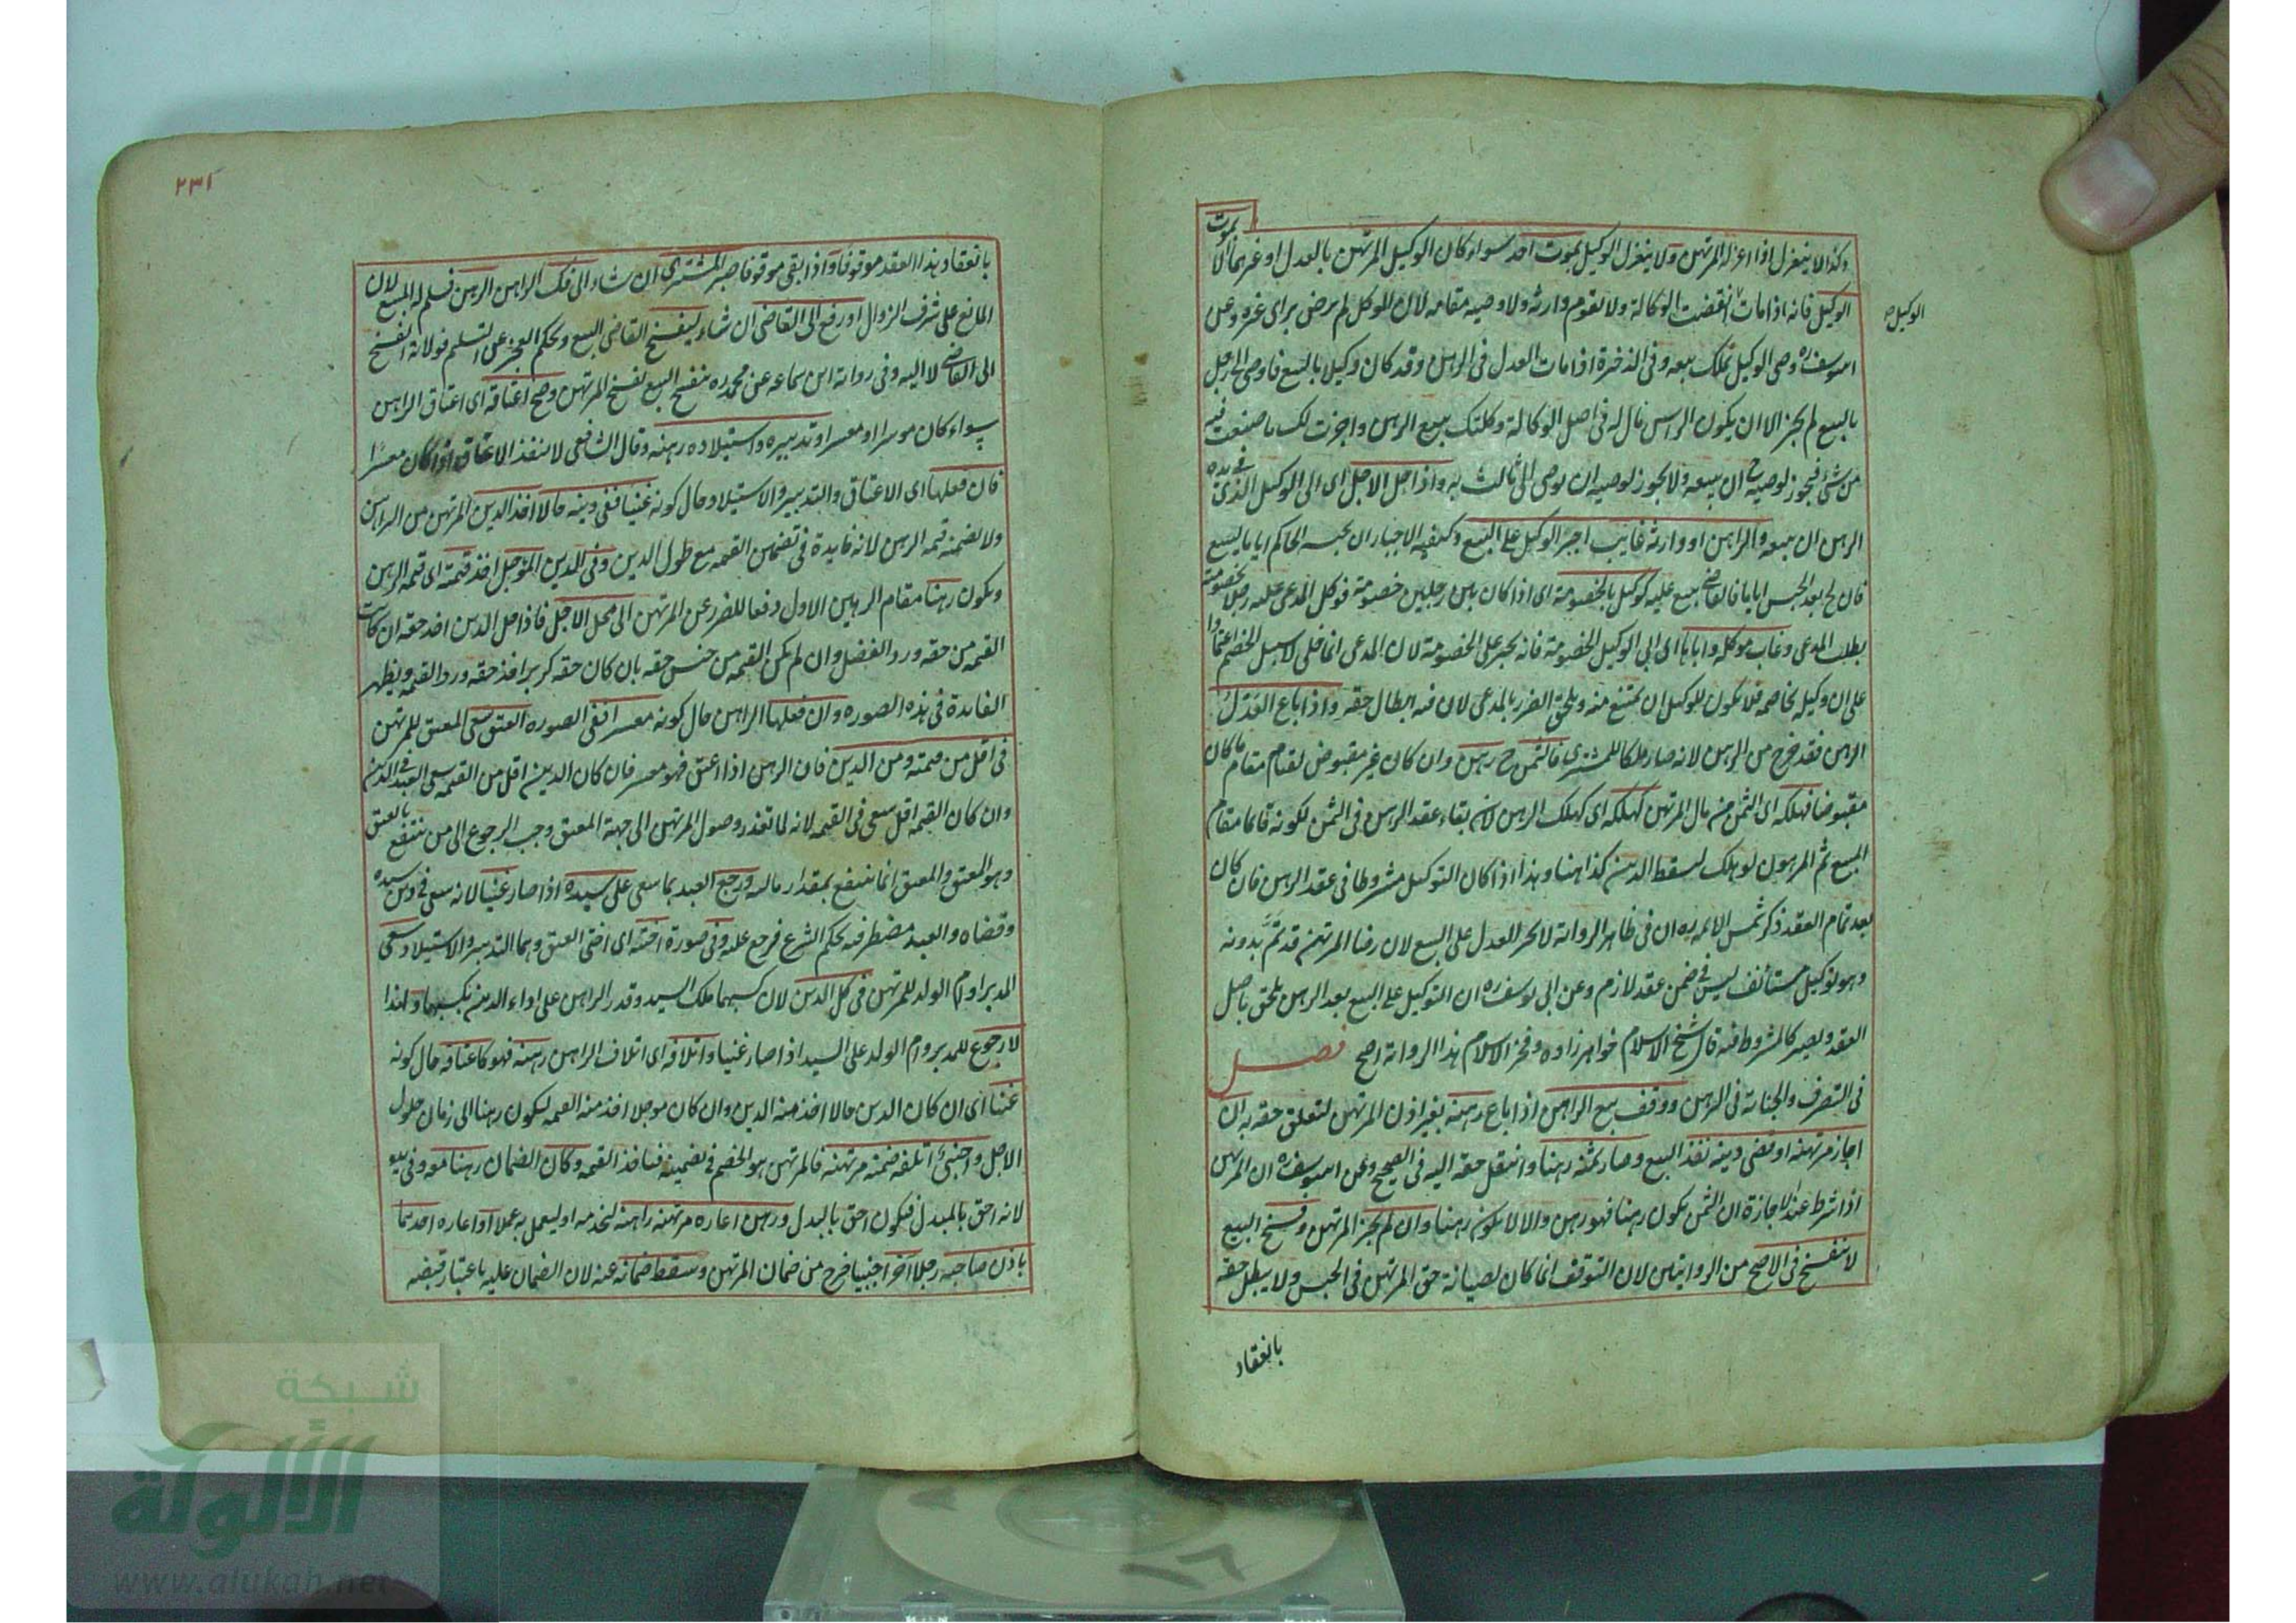 وكذا لا ينعزل اذا عزله المرتهن ولا ينعزل الوكيل بموت احد سواء كان الوكيل المرتهن بالعدل او غيرهما الا بموت
الوكيل فانه اذا مات انقضت الوكالة ولا يقوم وارثه ولا وصيه مقامه لان الموكل لم يرض براى غيره وعن
الوكيل صح
ابى يوسف ره وصى الوكيل يملك بيعه وفى الذخيرة اذا مات العدل فى الرهن وقد كان وكيلا بالبيع فاوصى الى رجل
بالبيع لم يجز الا ان يكون الراهن قال له فى اصل الوكالة وكلتك ببيع الرهن واجزت لك ما صنعت فيه
من شئ فيجوز لوصيه ان يبيعه ولا يجوز لوصيه ان يوصى الى ثالث به واذا حل الاجل اى الى الوكيل الذى فى يده
الرهن ان يبيعه والراهن او وارثه غايب اجبر الوكيل على البيع وكيفية الاجبار ان يحبسه الحاكم اياما ليبيع
فان لج بعد الحبس اياما فالقاضى يبيع عليه كوكيل بالخصومة اى اذا كان بين رجلين خصومة فوكل المدعى عليه رجلا بخصومته
بطلب المدعى وغاب موكله واباها اى ابى الوكيل الخصومة فانه يجبر على الخصومة لان المدعى انما خلى سبيل الخصم اعتمادا
على ان وكيله يخاصمه فلا يكون للوكيل ان يمتنع منه ويلحق الضرر بالمدعى لان فيه ابطال حقه واذا باع العدل
الرهن فقد خرج من الرهن لانه صار ملكا للمشترى فالثمن ح رهن وان كان غير مقبوض لقيامه مقام ما كان
مقبوضا فهلكه اى الثمن من مال المرتهن كهلكه اى كهلك الرهن لان بقاء عقد الرهن فى الثمن لكونه قائما مقام
المبيع ثم المرهون لو هلك يسقط الدين كذا هنا وهذا اذا كان التوكيل مشروطا فى عقد الرهن فان كان
بعد تمام العقد ذكر شمس الائمه ره ان فى ظاهر الرواية لا يجبر العدل على البيع لان رضا المرتهن قد تم بدونه
وهو توكيل مستأنف ليس فى ضمن عقد لازم وعن ابى يوسف ره ان التوكيل على البيع بعد الرهن يلحق باصل
العقد ويصير كالمشروط فيه قال شيخ الاسلام خواهرزاده وفخر الاسلام هذا الرواية اصح فصل
فى التصرف والجناية فى الرهن ووقف بيع الراهن اذا باع رهنه بغير اذن المرتهن لتعلق حقه به ان
اجاز مرتهنه او قضى دينه نفذ البيع وصار ثمنه رهنا وانتقل حقه اليه فى الصحيح وعن ابى يوسف ره ان المرتهن
اذا شرط عند الاجازة ان الثمن يكون رهنا فهو رهن والا لا يكون رهنا وان لم يجز المرتهن وفسخ البيع
لا ينفسخ فى الاصح من الروايتين لان التوقف انما كان لصيانة حق المرتهن فى الحبس ولا يبطل حقه
بانعقاد
٢٣١
بانعقاد هذا العقد موقوفا واذا بقى موقوفا صبر المشترى ان شاء الى فك الراهن الرهن فيسلم له المبيع لان
المانع على شرف الزوال او رفع الى القاضى ان شاء ليفسخ القاضى البيع ويحكم العجز عن التسليم فولاية الفسخ
الى القاضى لا اليه وفى رواية ابن سماعه عن محمد ره ينفسخ البيع بفسخ المرتهن وصح اعتاقه اى اعتاق الراهن
سواء كان موسرا او معسرا وتدبيره واستيلاده رهنه وقال الشافعى لا ينفذ الاعتاق اذا كان معسرا
فان فعلها اى الاعتاق والتدبير والاستيلاد حال كونه غنيا ففى دينه حالا اخذ الدين المرتهن من الراهن
ولا يضمنه قيمة الرهن لانه لا فايدة فى تضمين القيمه مع حلول الدين وفى الدين المؤجل اخذ قيمته اى قيمة الرهن
ويكون رهنا مقام الرهن الاول دفعا للضرر عن المرتهن الى محل الاجل فاذا حل الدين اخذ حقه ان كانت
القيمه من حقه ورد الفضل وان لم يكن القيمه من جنس حقه بان كان حقه كر بر اخذ حقه ورد القيمه ويظهر
الفايدة فى هذه الصوره وان فعلها الراهن حال كونه معسرا ففى الصوره العتق سعى المعتق للمرتهن
فى اقل من قيمته ومن الدين فان الرهن اذا اعتق فهو معسر فان كان الدين اقل من القيمه سعى العبد فى الدين
وان كان القيمه اقل سعى فى القيمه لانه لما تعذر وصول المرتهن الى جهة المعتق وجب الرجوع الى من ينتفع بالعتق
وهو المعتق والمعتق انما ينتفع بمقدار ماليته ويرجع العبد بما سعى على سيده اذا صار غنيا لانه سعى فى دين سيده
وقضاه والعبد مضطر فيه بحكم الشرع فيرجع عليه وفى صورة اختيه اى اختى العتق وهما التدبير والاستيلاد سعى
المدبر او ام الولد للمرتهن فى كل الدين لان كسبهما ملك السيد وقدر الراهن على اداء الدين بكسبهما ولهذا
لا رجوع للمدبر وام الولد على السيد اذا صار غنيا واتلافه اى اتلاف الراهن رهنه فهو كاعتاقه حال كونه
غنيا اى ان كان الدين حالا اخذ منه الدين وان كان موجلا اخذ منه القيمه ليكون رهنا الى زمان حلول
الاجل واجنبى اتلفه ضمنه مرتهنه فالمرتهن هو الخصم فى تضمينه فياخذ القيمه وكان الضمان رهنا معه وفى يده
لانه احق بالمبدل فيكون احق بالبدل ورهن اعاره مرتهنه راهنه لخدمه او ليعمل به عملا او اعاره احدهما
باذن صاحبه رجلا آخر اجنبيا خرج من ضمان المرتهن وسقط ضمانه عنه لان الضمان عليه باعتبار قبضه
شبكة
الألوكة
www.alukah.net